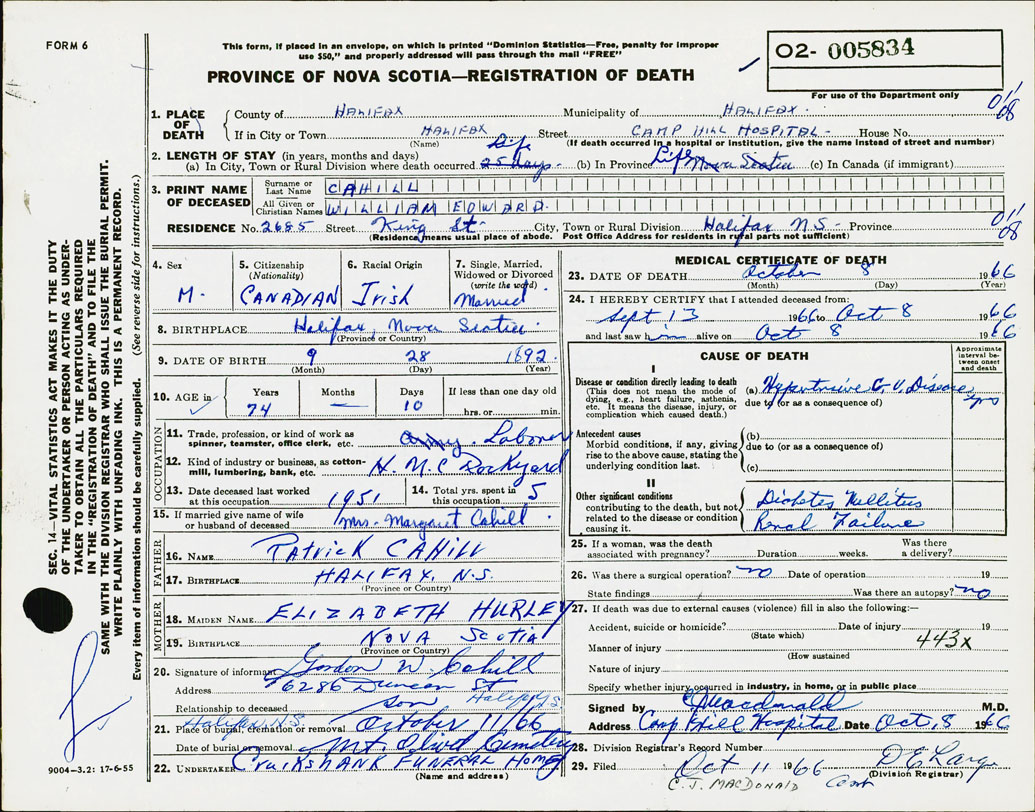 FORM 6
This form, if placed in an envelope, on which is printed "Dominion Statistics—Free, penalty for improper
use $50," and properly addressed will pass through the mail "FREE"
PROVINCE OF NOVA SCOTIA—REGISTRATION OF DEATH
02- 005834
For use of the Department only
1. PLACE OF DEATH County of HALIFAX Municipality of HALIFAX
If in City or Town HALIFAX Street CAMP HILL HOSPITAL - House No.
(Name) (If death occurred in a hospital or institution, give the name instead of street and number)
2. LENGTH OF STAY (in years, months and days)
(a) In City, Town or Rural Division where death occurred 25 days Life (b) In Province Life Nova Scotia (c) In Canada (if immigrant)
3. PRINT NAME OF DECEASED Surname or Last Name CAHILL
All Given or Christian Names WILLIAM EDWARD
RESIDENCE No. 2685 Street King St. City, Town or Rural Division Halifax N.S- Province
(Residence means usual place of abode. Post Office Address for residents in rural parts not sufficient)
4. Sex M.
5. Citizenship (Nationality) CANADIAN
6. Racial Origin Irish
7. Single, Married, Widowed or Divorced (write the word) Married
8. BIRTHPLACE Halifax, Nova Scotia
(Province or Country)
9. DATE OF BIRTH 9 28 1892
(Month) (Day) (Year)
10. AGE in Years 74 Months — Days 10 If less than one day old hrs. or min.
OCCUPATION
11. Trade, profession, or kind of work as spinner, teamster, office clerk, etc. Army. Laborer
12. Kind of industry or business, as cotton-mill, lumbering, bank, etc. H. M. C Dockyard
13. Date deceased last worked at this occupation 1951
14. Total yrs. spent in this occupation 5
15. If married give name of wife or husband of deceased Mrs. Margaret Cahill
FATHER
16. NAME PATRICK CAHILL
17. BIRTHPLACE HALIFAX, N.S.
(Province or Country)
MOTHER
18. MAIDEN NAME ELIZABETH HURLEY
19. BIRTHPLACE NOVA SCOTIA
(Province or Country)
20. Signature of informant Gordon W. Cahill
Address 6286 Duncan St
Relationship to deceased son
Halifax, N.S.
21. Place of burial, cremation or removal October 11/66
Date of burial or removal Mt. Olivet Cemetery
22. UNDERTAKER Cruikshank Funeral Home
(Name and address)
MEDICAL CERTIFICATE OF DEATH
23. DATE OF DEATH October 8 1966
(Month) (Day) (Year)
24. I HEREBY CERTIFY that I attended deceased from:
Sept 13 1966 to Oct 8 1966
and last saw him alive on Oct 8 1966
CAUSE OF DEATH
Approximate interval between onset and death
I
Disease or condition directly leading to death
(This does not mean the mode of dying, e.g., heart failure, asthenia, etc. It means the disease, injury, or complication which caused death.)
(a) Hypertensive C. V. Disease yrs
due to (or as a consequence of)
Antecedent causes
Morbid conditions, if any, giving rise to the above cause, stating the underlying condition last.
(b)
due to (or as a consequence of)
(c)
II
Other significant conditions
contributing to the death, but not related to the disease or condition causing it.
Diabetes Mellitus
Renal Failure
25. If a woman, was the death associated with pregnancy? Duration weeks. Was there a delivery?
26. Was there a surgical operation? no Date of operation 19
State findings Was there an autopsy? no
27. If death was due to external causes (violence) fill in also the following:—
Accident, suicide or homicide? Date of injury 19
(State which)
Manner of injury 443x
(How sustained
Nature of injury
Specify whether injury occurred in industry, in home, or in public place
Signed by Macdonald M.D.
Address Camp Hill Hospital Date Oct. 8 1966
28. Division Registrar's Record Number
29. Filed Oct 11 1966
(Division Registrar)
C. J. MACDONALD
SEC. 14—VITAL STATISTICS ACT MAKES IT THE DUTY
OF THE UNDERTAKER OR PERSON ACTING AS UNDER-
TAKER TO OBTAIN ALL THE PARTICULARS REQUIRED
IN THE "REGISTRATION OF DEATH" AND TO FILE THE
SAME WITH THE DIVISION REGISTRAR WHO SHALL ISSUE THE BURIAL PERMIT.
WRITE PLAINLY WITH UNFADING INK. THIS IS A PERMANENT RECORD.
Every item of information should be carefully supplied. (See reverse side for instructions.)
9004—3.2: 17-6-55